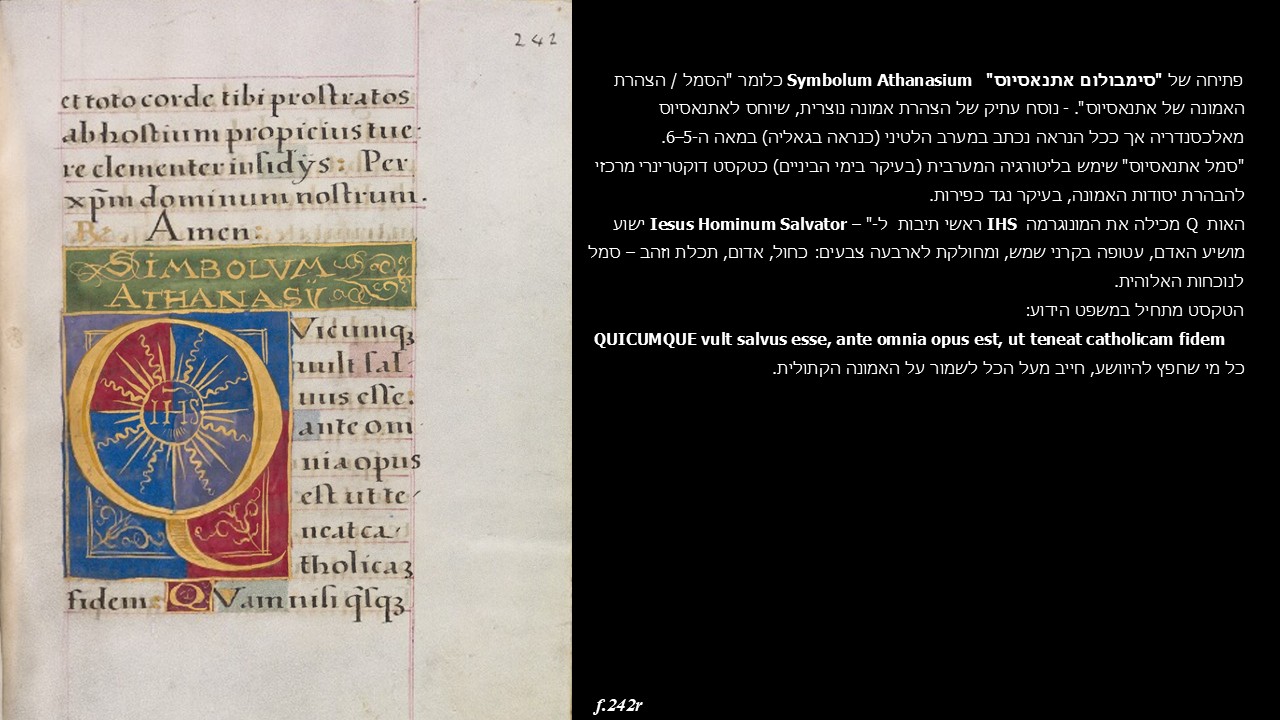 242
et toto corde tibi prostratos
ab hostium propicius tue-
re clementer insidÿs: Per
xp̄m dominum nostrum.
R. Amen:
SIMBOLVM
ATHANASIJ
QVicumqꝫ
vult sal
uus esse.
ante om
nia opus
est ut te-
neat ca-
tholicaꝫ
fidem: QVam nisi q̃sqꝫ
IHS
פתיחה של "סימבולום אתנאסיוס" Symbolum Athanasium כלומר "הסמל / הצהרת
האמונה של אתנאסיוס". - נוסח עתיק של הצהרת אמונה נוצרית, שיוחס לאתנאסיוס
מאלכסנדריה אך ככל הנראה נכתב במערב הלטיני (כנראה בגאליה) במאה ה-5–6.
"סמל אתנאסיוס" שימש בליטורגיה המערבית (בעיקר בימי הביניים) כטקסט דוקטרינרי מרכזי
להבהרת יסודות האמונה, בעיקר נגד כפירות.
האות Q מכילה את המונוגרמה IHS ראשי תיבות ל-" – Iesus Hominum Salvator ישוע
מושיע האדם, עטופה בקרני שמש, ומחולקת לארבעה צבעים: כחול, אדום, תכלת וזהב – סמל
לנוכחות האלוהית.
הטקסט מתחיל במשפט הידוע:
QUICUMQUE vult salvus esse, ante omnia opus est, ut teneat catholicam fidem
כל מי שחפץ להיוושע, חייב מעל הכל לשמור על האמונה הקתולית.
f.242r